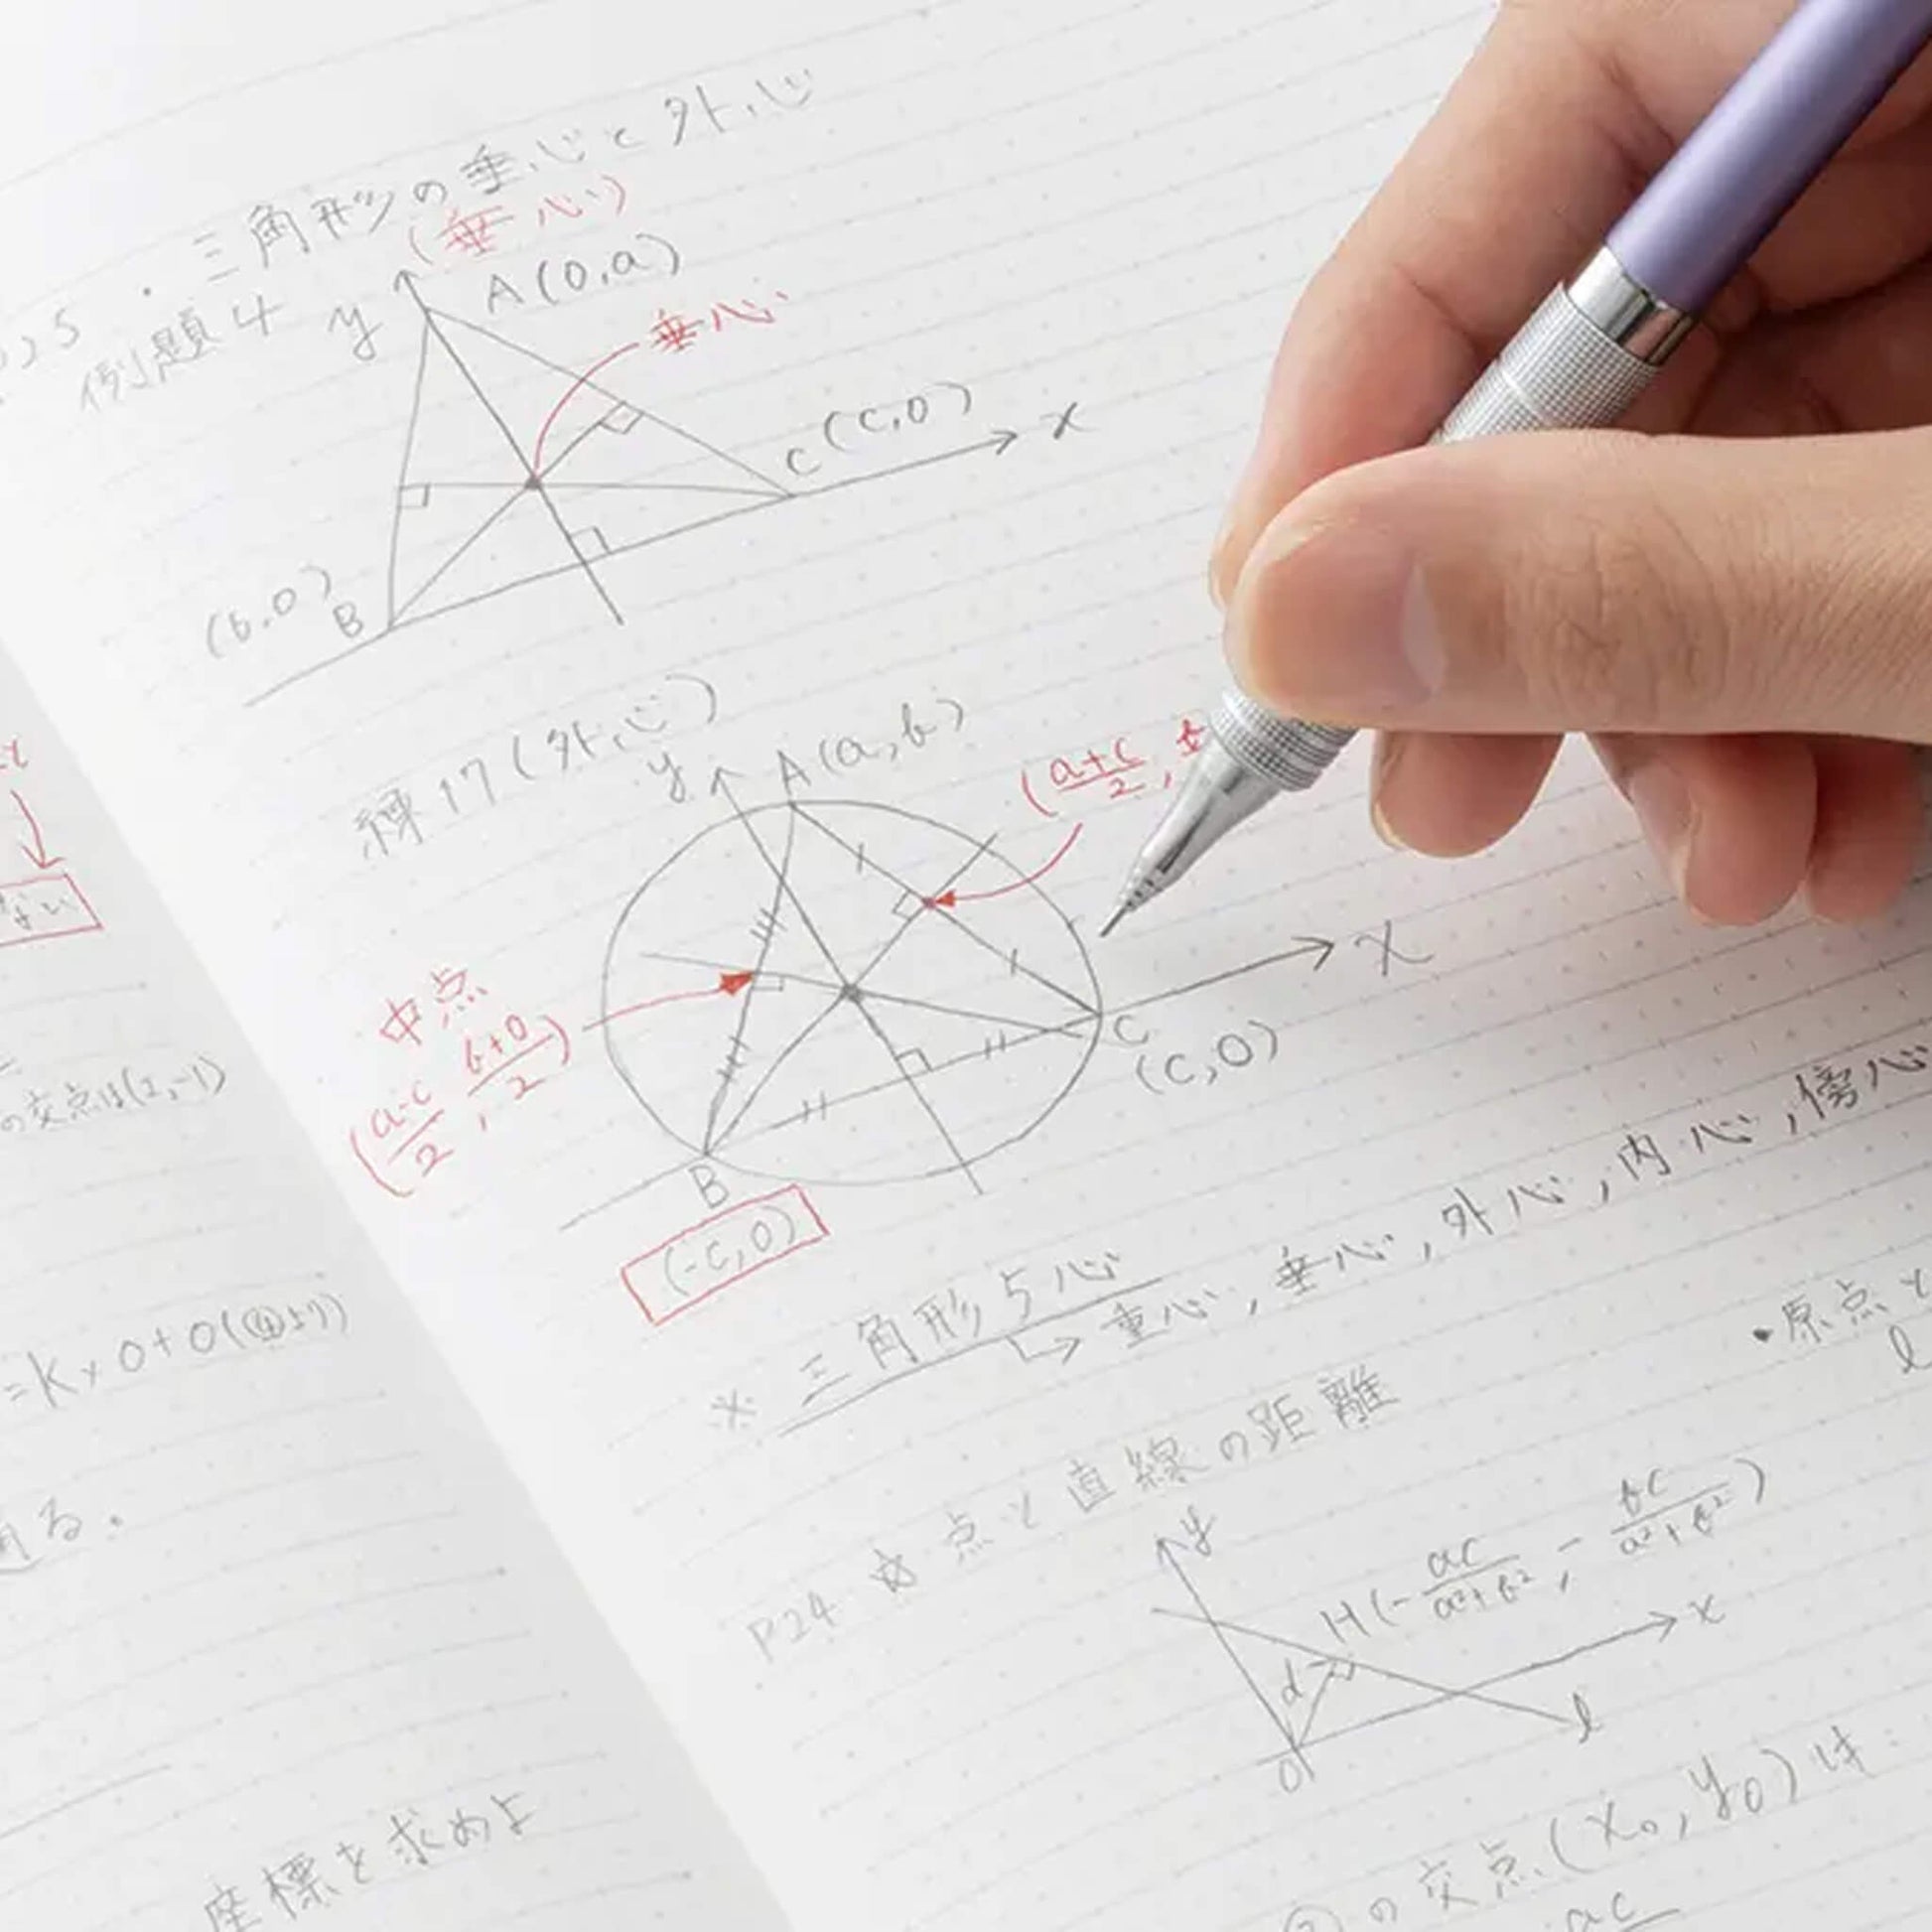 ・三角形の垂心と外心
例題4
(垂心)
y
A(0,a)
垂心
C(c,0)
x
(b,0)
B
練17(外心)
y
A(a,b)
(a+c/2,
中点
(a-c/2, b+0/2)
x
C
(c,0)
B
(-c,0)
※ 三角形5心
↳ 重心,垂心,外心,内心,傍心
P24 ☆ 点と直線の距離
y
H(-ac/a²+b², -bc/a²+b²)
x
d
l
O
・原点と
l
の交点(x₀,y₀)は
ac
ない
の交点は(2,-1)
=k×0+0(④より)
通る。
座標を求めよ